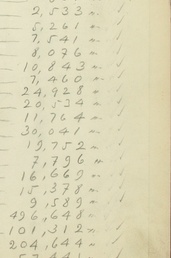 2,533 "
5,261 "
7,541 "
8,076 "
10,843 "
7,460 "
24,928 "
20,534 "
11,764 "
30,041 "
19,752 "
7,796 "
16,669 "
15,378 "
9,589 "
496,648 "
101,312 "
204,644 "